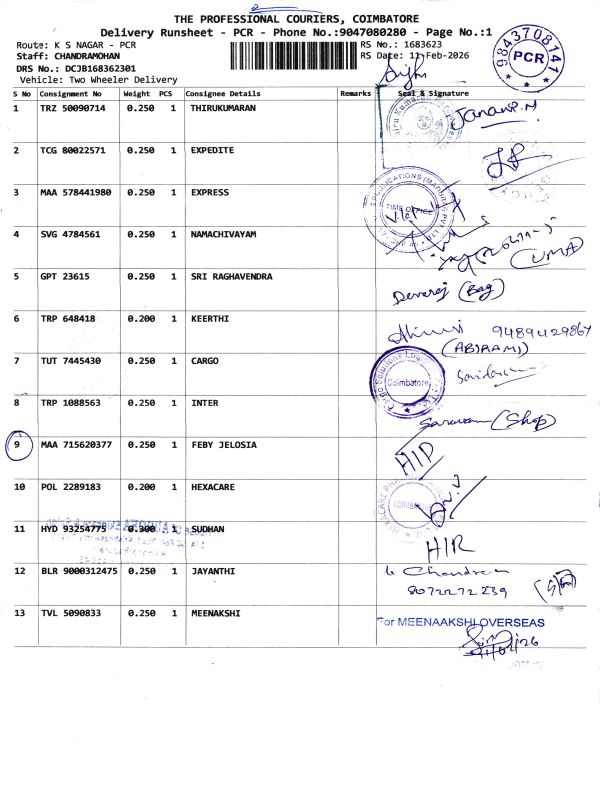 2
THE PROFESSIONAL COURIERS, COIMBATORE
Delivery Runsheet - PCR - Phone No.:9047080280 - Page No.:1
Route: K S NAGAR - PCR RS No.: 1683623
Staff: CHANDRAMOHAN RS Date: 11-Feb-2026
DRS No.: DCJB168362301
Vehicle: Two Wheeler Delivery
9843708141
PCR
S No Consignment No Weight PCS Consignee Details Remarks Seal & Signature
1 TRZ 50090714 0.250 1 THIRUKUMARAN
2 TCG 80022571 0.250 1 EXPEDITE
3 MAA 578441980 0.250 1 EXPRESS
TIME OFFICE
4 SVG 4784561 0.250 1 NAMACHIVAYAM
(UMA)
5 GPT 23615 0.250 1 SRI RAGHAVENDRA
Devaraj (Bag)
6 TRP 648418 0.200 1 KEERTHI
9489429867
(ABIRAMI)
7 TUT 7445430 0.250 1 CARGO
Coimbatore
8 TRP 1088563 0.250 1 INTER
(Shop)
9 MAA 715620377 0.250 1 FEBY JELOSIA
HID
10 POL 2289183 0.200 1 HEXACARE
11 HYD 93254775 0.300 1 SUDHAN
HIR
12 BLR 9000312475 0.250 1 JAYANTHI
8072272239
13 TVL 5090833 0.250 1 MEENAKSHI
For MEENAAKSHI OVERSEAS